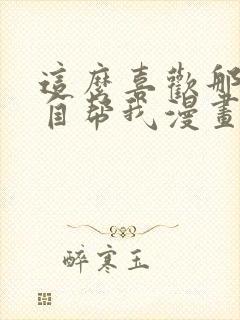 這麼喜歡那
自幫我漫畫
醉寒玉